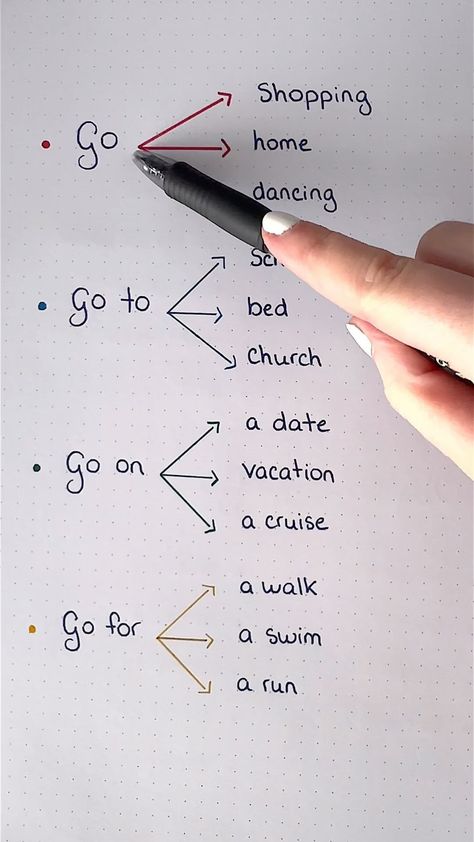 Go
Shopping
home
dancing
Go to
bed
church
Go on
a date
vacation
a cruise
Go for
a walk
a swim
a run